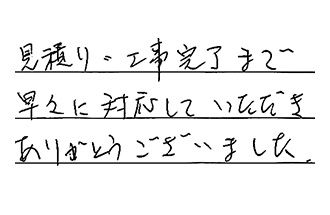 見積り、工事完了まで
早々に対応していただき
ありがとうございました。